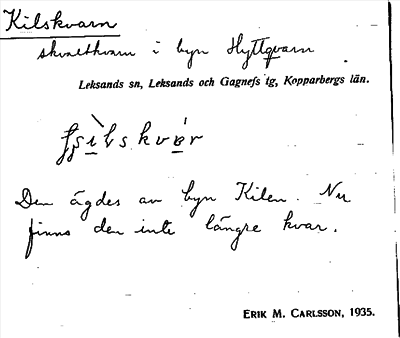 Kilskvarn
skvaltkvarn i byn Hyttkvarn
Leksands sn, Leksands och Gagnefs tg, Kopparbergs län.
Den ägdes av byn Kilen. Nu
finns den inte längre kvar.
ERIK M. CARLSSON, 1935.